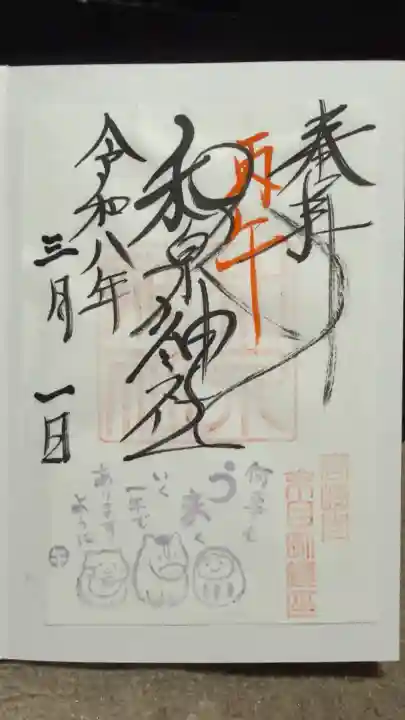 奉拝
丙午
和泉神社
令和八年
三月 一日
何事も
うまく
いく
一年で
ありますように